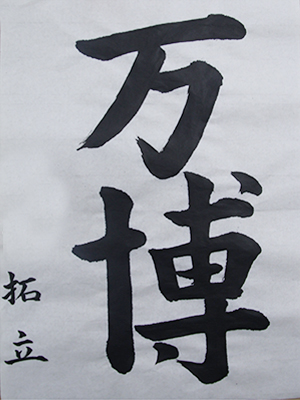 万博
拓立